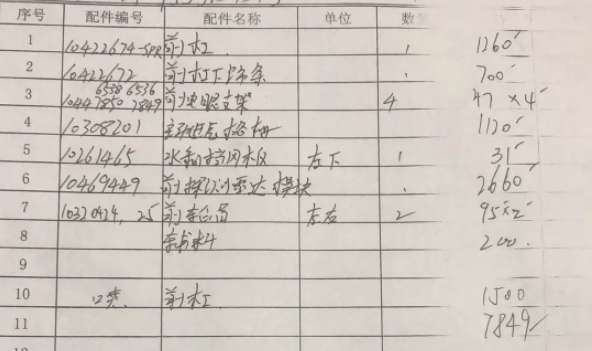 序号 配件编号 配件名称 单位 数
1 10422674-SPR 前杠 1 1260
2 10422672 前杠下饰条 700
6538 6536
3 10447850 7849 前电眼支架 4 47×4
4 10308201 主动进气格栅 1120
5 10261465 水箱挡风板 左下 1 31
6 10469449 前探测雷达模块 2660
7 10320424, 25 前 左右 2 95×2
8 辅料 200.
9
10 口喷. 前杠 1500
11 7849